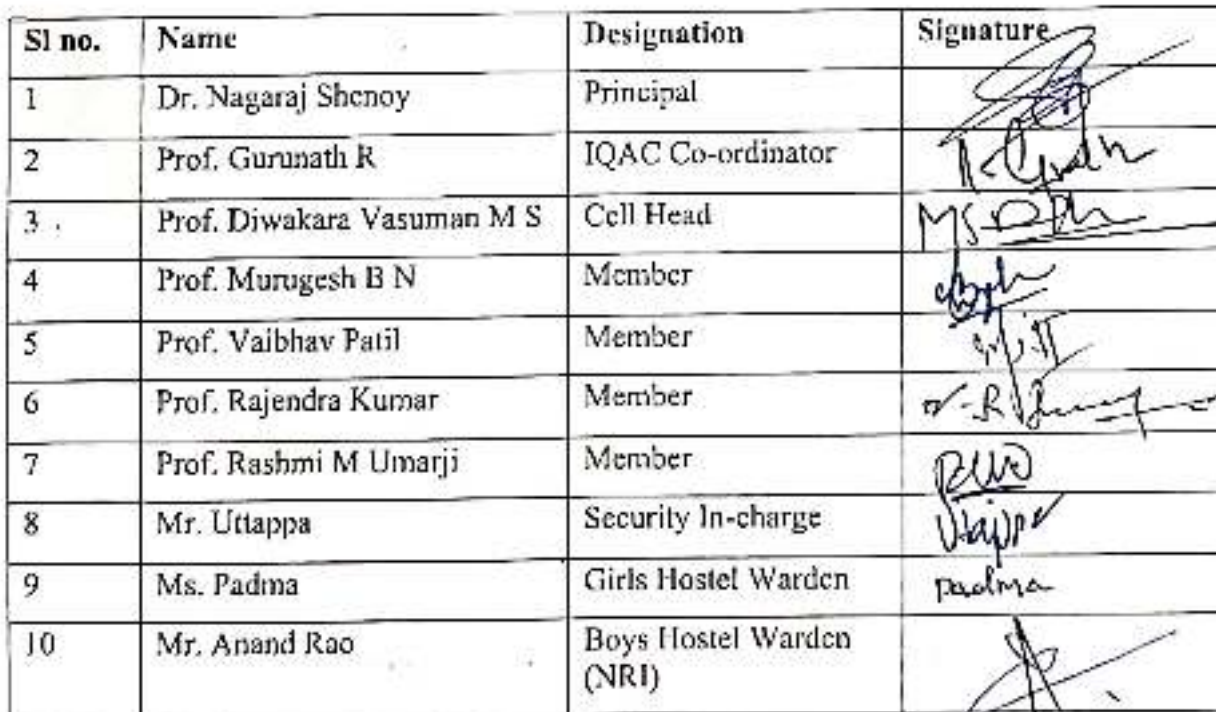 Sl no. Name Designation Signature
1 Dr. Nagaraj Shenoy Principal
2 Prof. Gurunath R IQAC Co-ordinator
3 Prof. Diwakara Vasuman M S Cell Head MS
4 Prof. Murugesh B N Member
5 Prof. Vaibhav Patil Member
6 Prof. Rajendra Kumar Member
7 Prof. Rashmi M Umarji Member
8 Mr. Uttappa Security In-charge
9 Ms. Padma Girls Hostel Warden Padma
10 Mr. Anand Rao Boys Hostel Warden
(NRI)